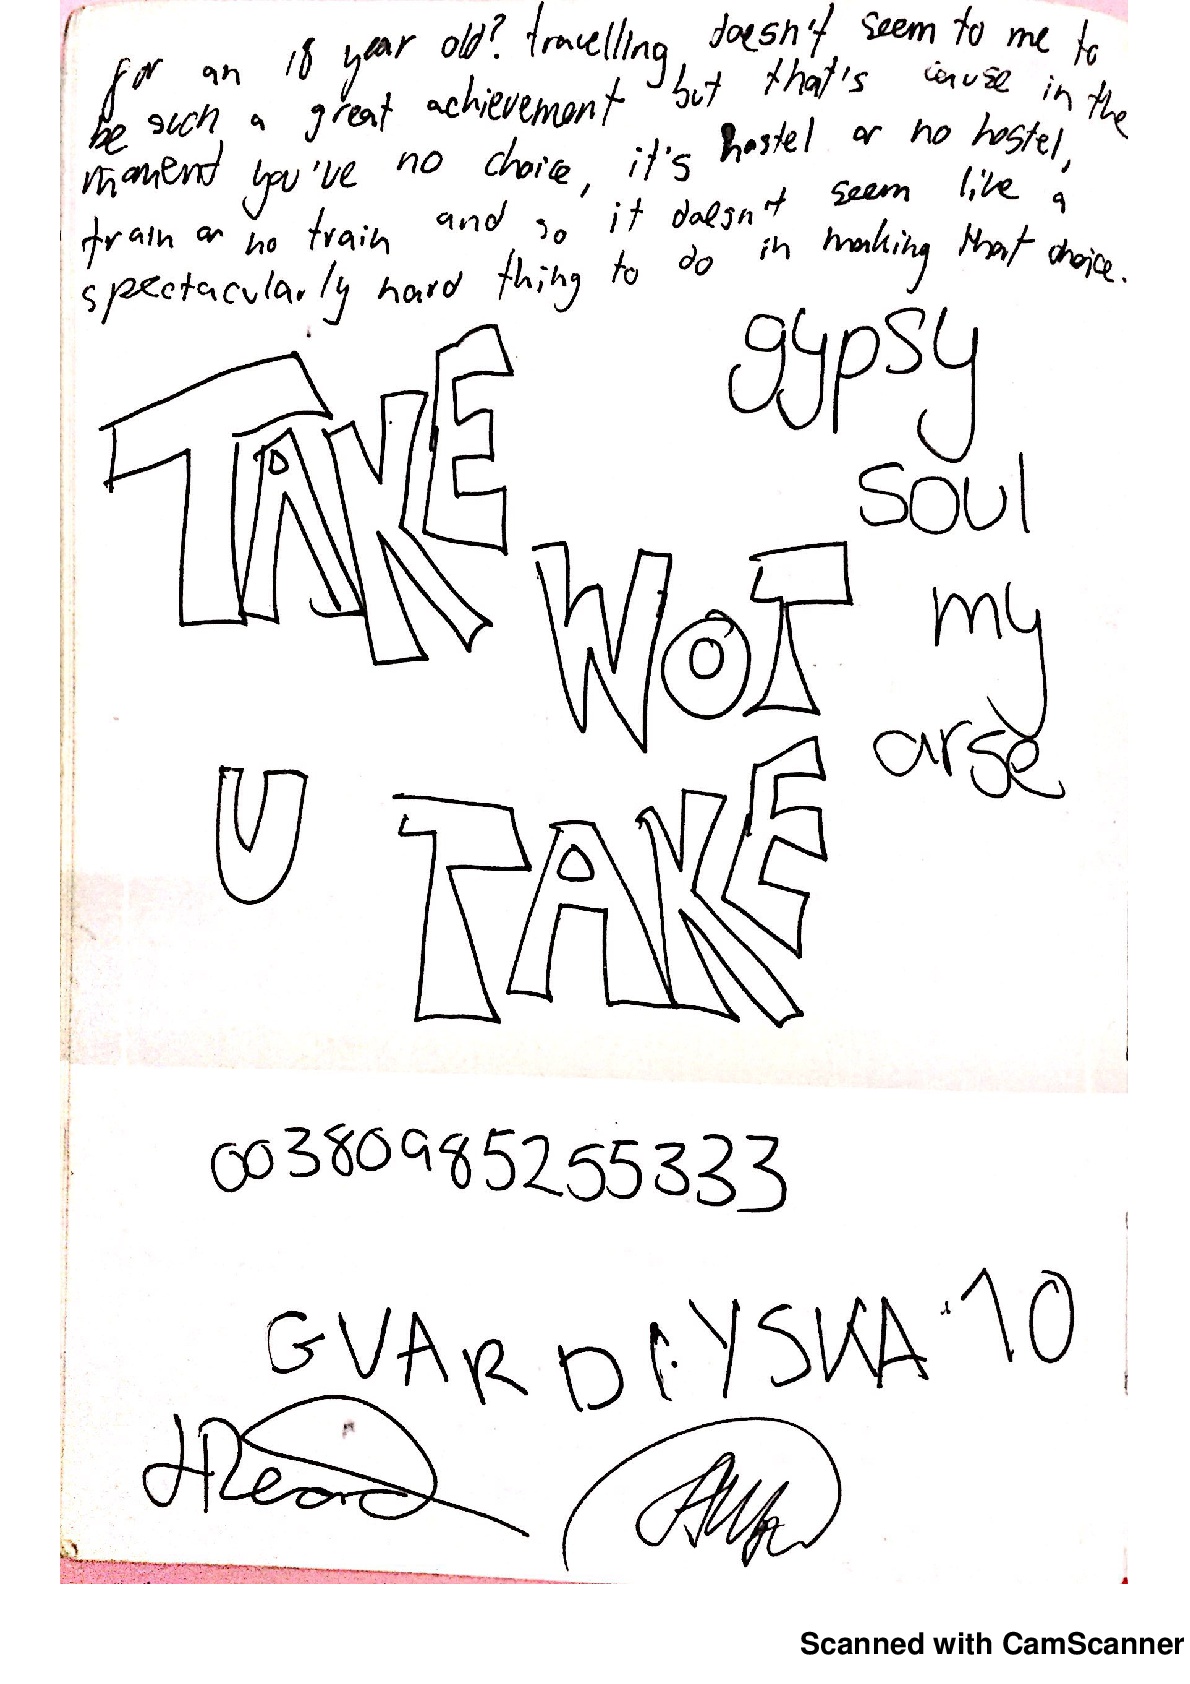 for an 18 year old? travelling doesn't seem to me to
be such a great achievement but that's cause in the
moment you've no choice, it's hostel or no hostel,
train or no train and so it doesn't seem like a
spectacularly hard thing to do in making that choice.
gypsy
soul
my
arse
TAKE
WOT
U TAKE
00380985255333
GVARDIYSKA 10
Scanned with CamScanner